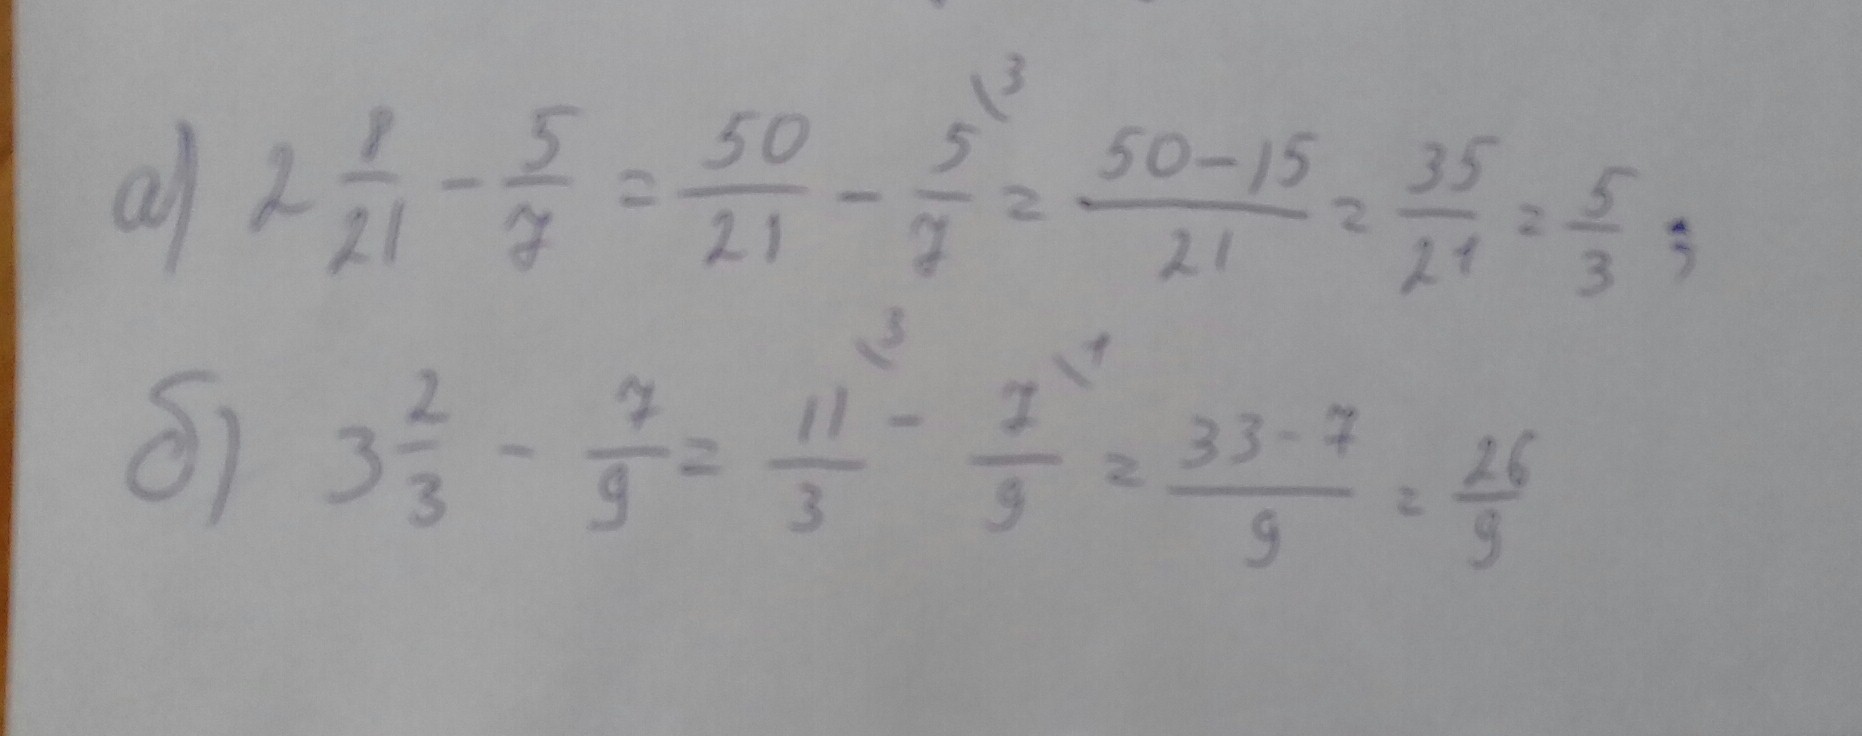 а) 2 8/21 - 5/7 = 50/21 - 5/7 \3 = 50-15/21 = 35/21 = 5/3 ;
б) 3 2/3 - 7/9 = 11/3 \3 - 7/9 \1 = 33-7/9 = 26/9